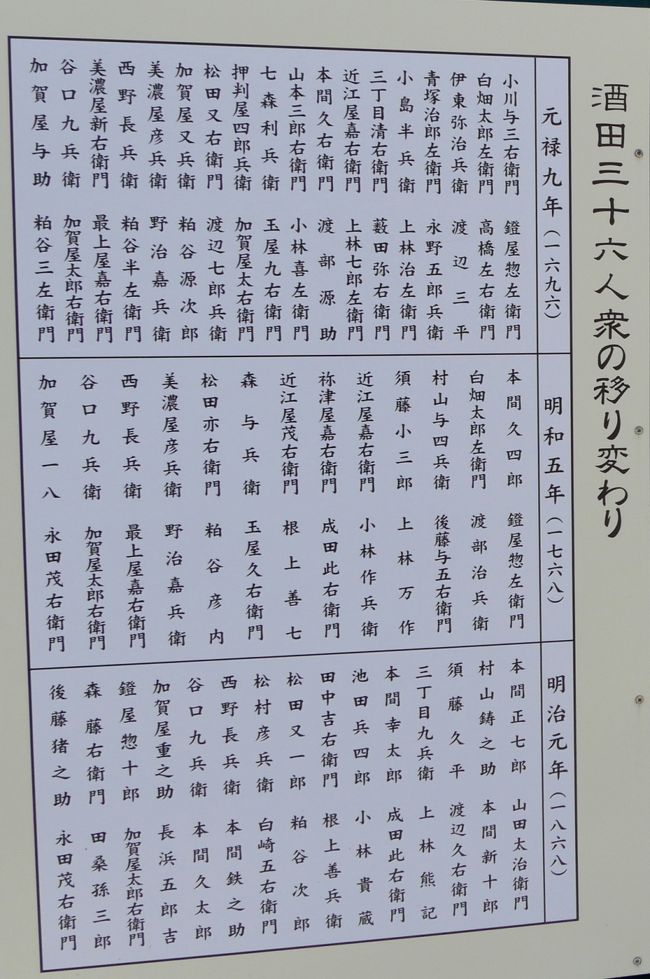 酒田三十六人衆の移り変わり
元禄九年(一六九六)
小川与三右衛門 鐙屋惣左衛門
白畑太郎左衛門 高橋左右衛門
伊東弥治兵衛 渡辺三平
青塚治郎左衛門 永野五郎兵衛
小島半兵衛 上林治左衛門
三丁目清右衛門 薮田弥右衛門
近江屋嘉右衛門 上林七郎左衛門
本間久右衛門 渡部源助
山本三郎右衛門 小林喜左衛門
七森利兵衛 玉屋九右衛門
押判屋四郎兵衛 加賀屋太右衛門
松田又右衛門 渡辺七郎兵衛
加賀屋又兵衛 粕谷源次郎
美濃屋彦兵衛 野治嘉兵衛
西野長兵衛 粕谷半左衛門
美濃屋新右衛門 最上屋嘉右衛門
谷口九兵衛 加賀屋太郎右衛門
加賀屋与助 粕谷三左衛門
明和五年(一七六八)
本間久四郎 鐙屋惣左衛門
白畑太郎左衛門 渡部治兵衛
村山与四兵衛 後藤与五右衛門
須藤小三郎 上林万作
近江屋嘉右衛門 小林作兵衛
祢津屋嘉右衛門 成田此右衛門
近江屋茂右衛門 根上善七
森与兵衛 玉屋久右衛門
松田亦右衛門 粕谷彦内
美濃屋彦兵衛 野治嘉兵衛
西野長兵衛 最上屋嘉右衛門
谷口九兵衛 加賀屋太郎右衛門
加賀屋一八 永田茂右衛門
明治元年(一八六八)
本間正七郎 山田太治衛門
村山鋳之助 本間新十郎
須藤久平 渡辺久右衛門
三丁目九兵衛 上林熊記
本間幸太郎 成田此右衛門
池田兵四郎 小林貴蔵
田中吉右衛門 根上善兵衛
松田又一郎 粕谷次郎
松村彦兵衛 白崎五右衛門
西野長兵衛 本間鉄之助
谷口九兵衛 本間久太郎
加賀屋重之助 長浜五郎吉
鐙屋惣十郎 加賀屋太郎右衛門
森藤右衛門 田桑孫三郎
後藤猪之助 永田茂右衛門